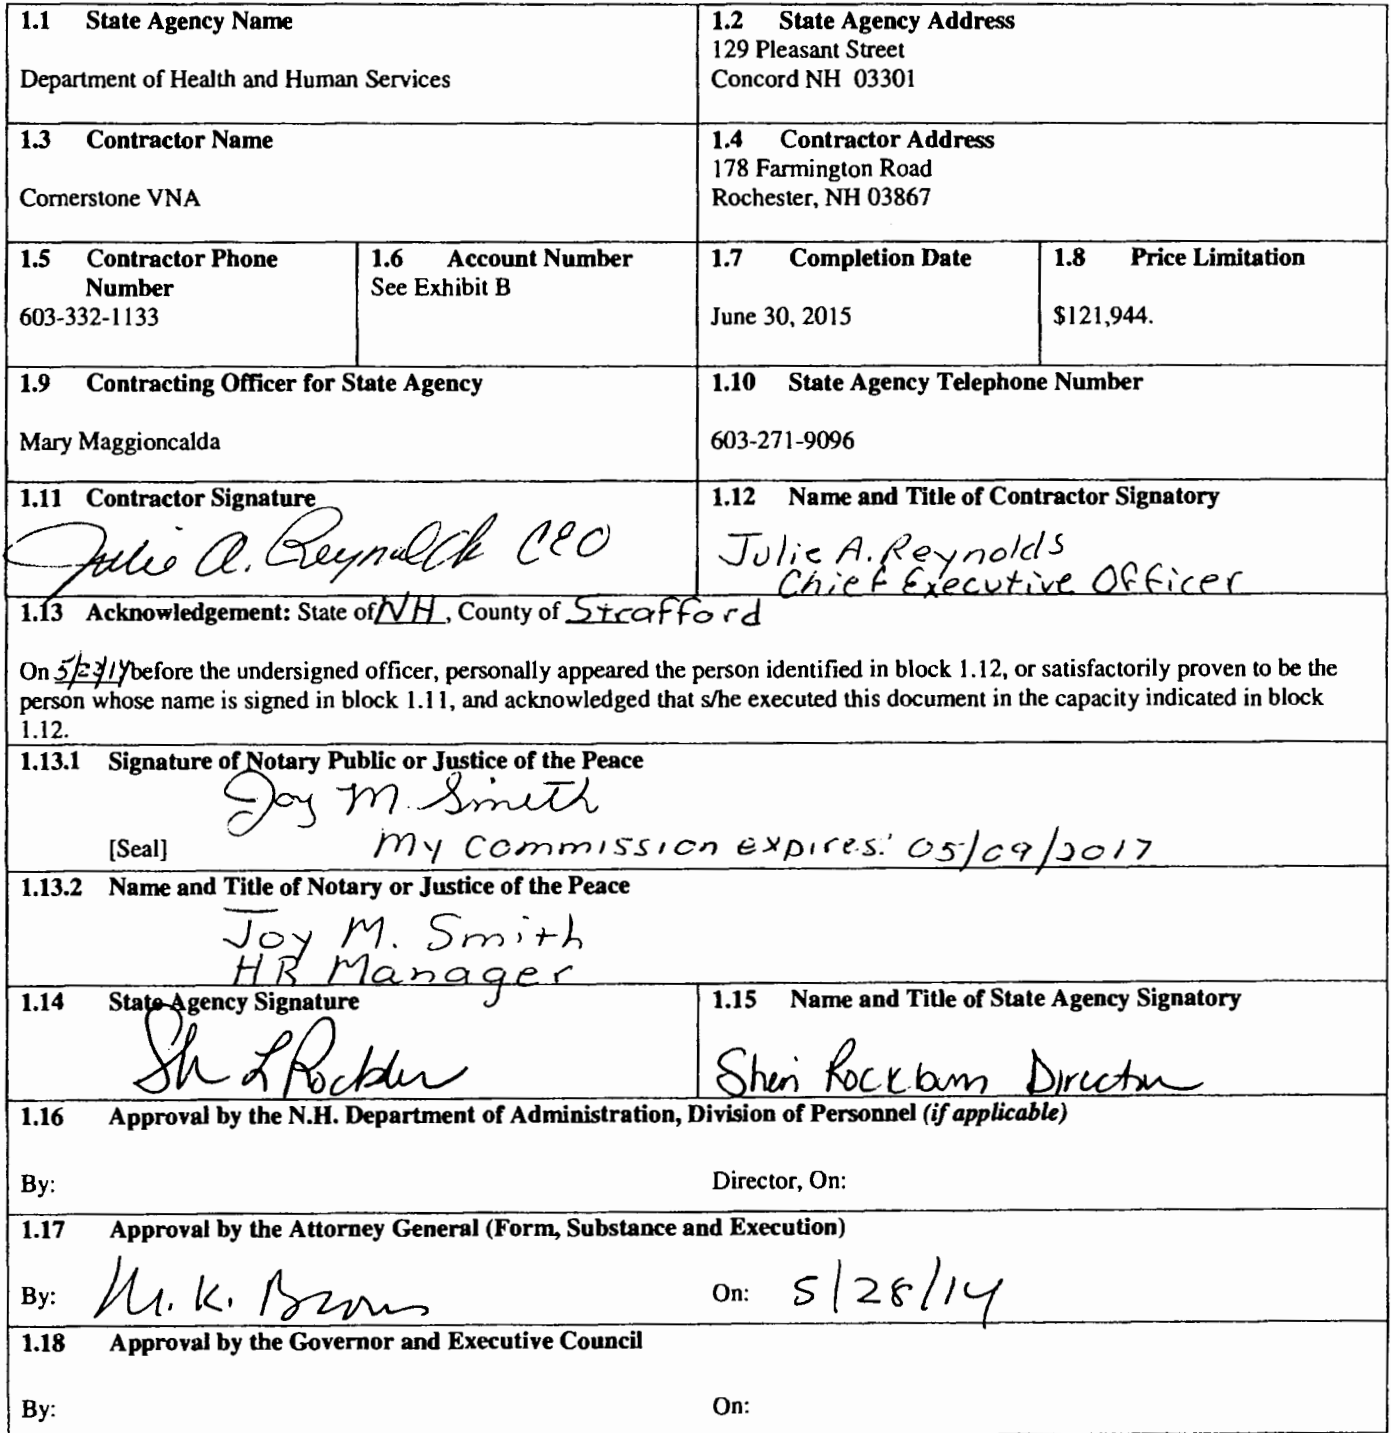 1.1 State Agency Name
Department of Health and Human Services
1.2 State Agency Address
129 Pleasant Street
Concord NH 03301
1.3 Contractor Name
Cornerstone VNA
1.4 Contractor Address
178 Farmington Road
Rochester, NH 03867
1.5 Contractor Phone
Number
603-332-1133
1.6 Account Number
See Exhibit B
1.7 Completion Date
June 30, 2015
1.8 Price Limitation
$121,944.
1.9 Contracting Officer for State Agency
Mary Maggioncalda
1.10 State Agency Telephone Number
603-271-9096
1.11 Contractor Signature
Julie A. Reynolds CEO
1.12 Name and Title of Contractor Signatory
Julie A. Reynolds
Chief Executive Officer
1.13 Acknowledgement: State of NH, County of Strafford
On 5/23/14 before the undersigned officer, personally appeared the person identified in block 1.12, or satisfactorily proven to be the
person whose name is signed in block 1.11, and acknowledged that s/he executed this document in the capacity indicated in block
1.12.
1.13.1 Signature of Notary Public or Justice of the Peace
Joy M. Smith
[Seal] My Commission expires: 05/09/2017
1.13.2 Name and Title of Notary or Justice of the Peace
Joy M. Smith
HR Manager
1.14 State Agency Signature
1.15 Name and Title of State Agency Signatory
Sheri Rockburn Director
1.16 Approval by the N.H. Department of Administration, Division of Personnel (if applicable)
By: Director, On:
1.17 Approval by the Attorney General (Form, Substance and Execution)
By: M. K. Brown On: 5/28/14
1.18 Approval by the Governor and Executive Council
By: On: